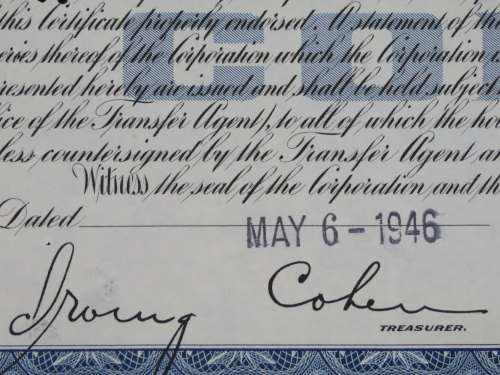 this Certificate properly endorsed. A statement of the
thereof of the Corporation which the Corporation is
presented hereby are issued and shall be held subject
of the Transfer Agent), to all of which the
less countersigned by the Transfer Agent
Witness the seal of the Corporation and the
Dated MAY 6 - 1946
Irving Cohen
TREASURER.